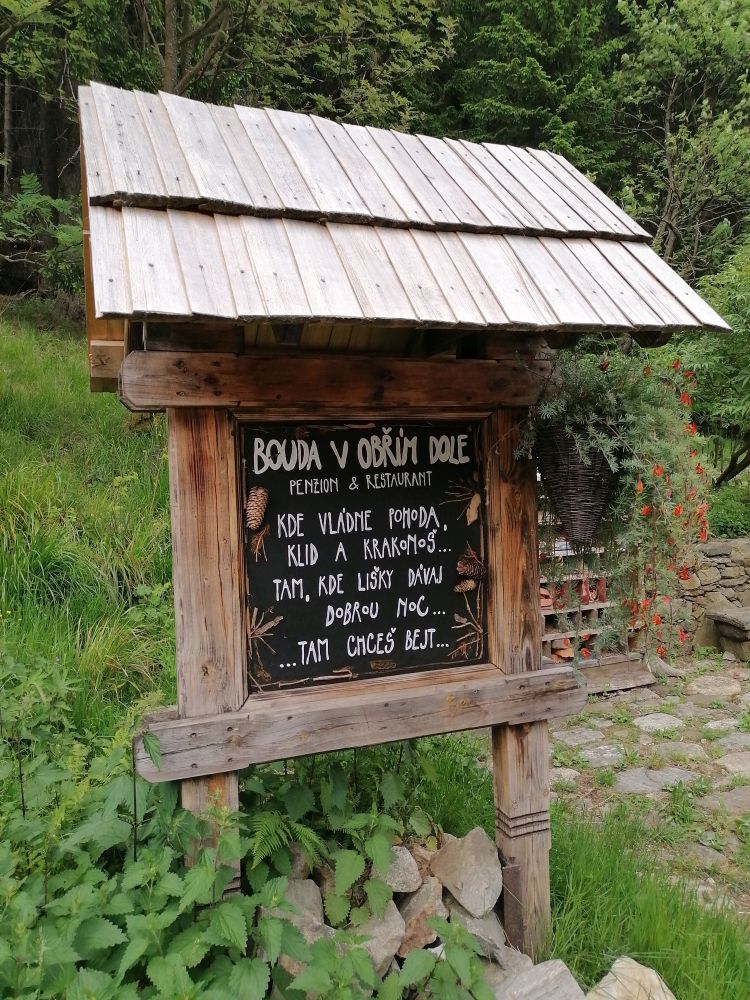 BOUDA V OBŘÍM DOLE
PENZION & RESTAURANT
KDE VLÁDNE POHODA,
KLID A KRAKONOŠ...
TAM, KDE LIŠKY DÁVAJ
DOBROU NOC...
...TAM CHCEŠ BEJT...